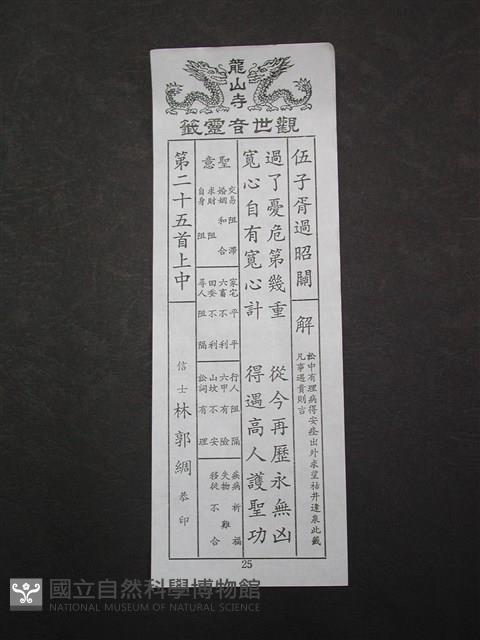 龍山寺
觀世音靈籤
伍子胥過昭關
解
訟中有理病得安產出外求望祜井逢泉此籤
凡事遇貴則吉
過了憂危第幾重　從今再歷永無凶
寬心自有寬心計　得遇高人護聖功
聖意
交易　阻滯
婚姻　和合
求財　阻
自身　阻
家宅　平平
六畜　不利
田蚕　不利
尋人　阻隔
行人　阻隔
六甲　有險
山坟　不安
訟詞　有理
疾病　祈福
失物　難
移徙　不合
第二十五首上中
信士　林郭綢　恭印
25
國立自然科學博物館
NATIONAL MUSEUM OF NATURAL SCIENCE